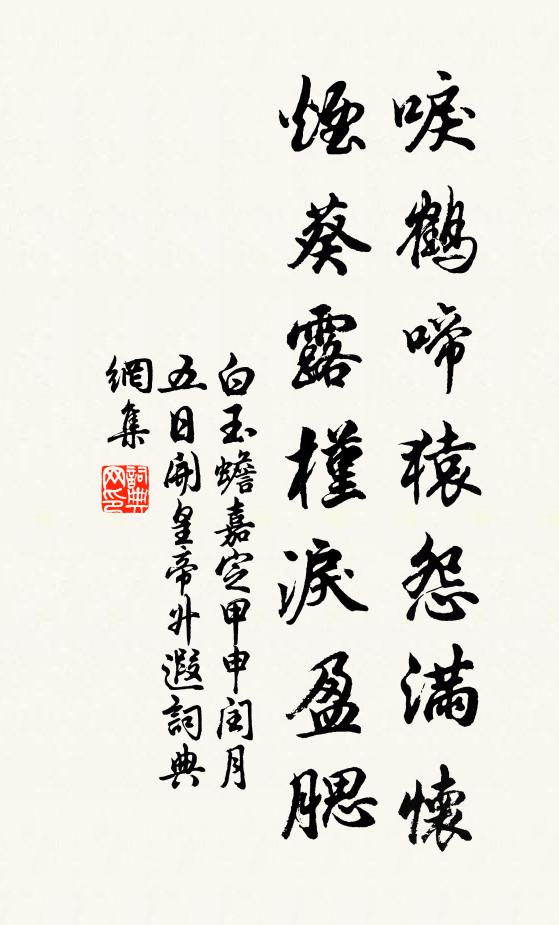 唳鶴啼猿怨滿懷
煙葵露槿淚盈腮
白玉蟾嘉定甲申閏月
五日聞皇帝升遐詞典
網集
詞典
网印